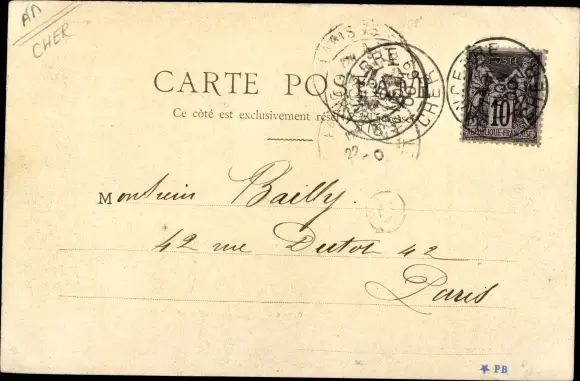 AN
CHER
CARTE POSTALE
Ce côté est exclusivement réservé
POSTE
10
REPUBLIQUE FRANÇAISE
CHER
CHER
PARIS
Monsieur Bailly.
42 rue Dutot 42
Paris
PB